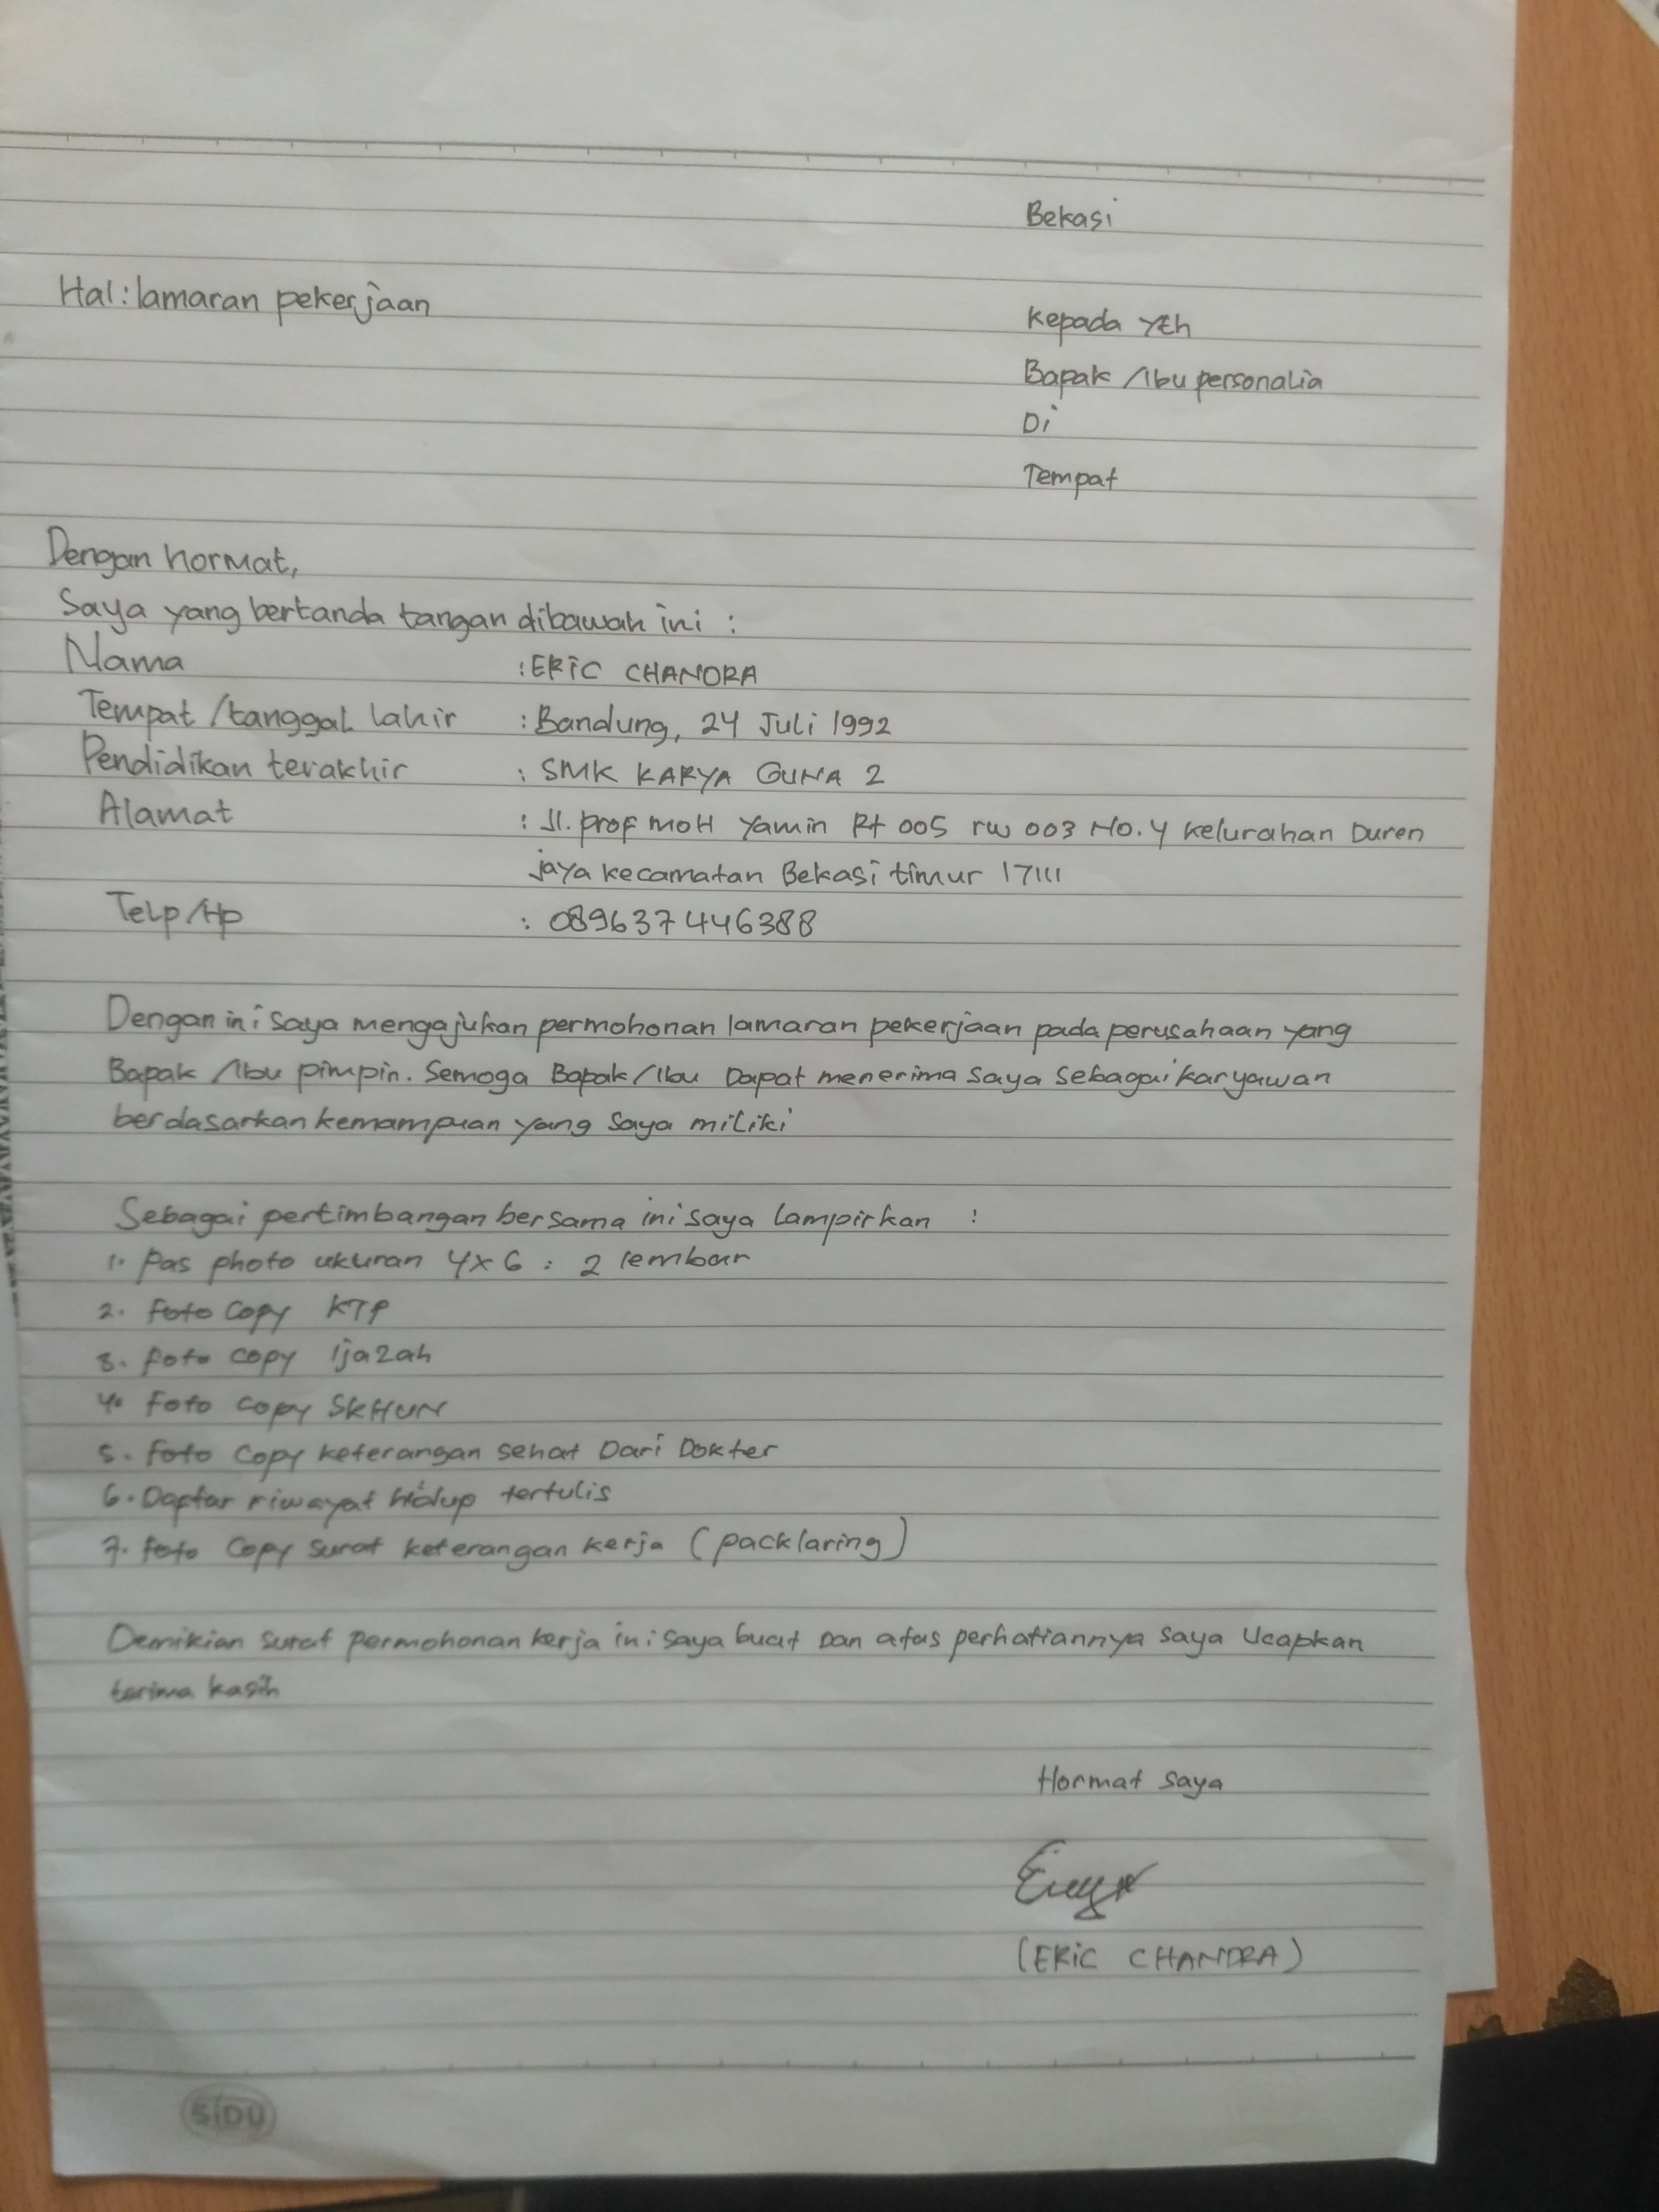 Bekasi
Hal : lamaran pekerjaan
Kepada Yth
Bapak /Ibu personalia
Di
Tempat
Dengan hormat,
Saya yang bertanda tangan dibawah ini :
Nama : ERIC CHANDRA
Tempat /tanggal lahir : Bandung, 24 Juli 1992
Pendidikan terakhir : SMK KARYA GUNA 2
Alamat : Jl. prof MOH Yamin Rt 005 rw 003 No. 4 kelurahan Duren
jaya kecamatan Bekasi timur 17111
Telp/Hp : 089637446388
Dengan ini saya mengajukan permohonan lamaran pekerjaan pada perusahaan yang
Bapak /Ibu pimpin. Semoga Bapak/Ibu Dapat menerima saya sebagai karyawan
berdasarkan kemampuan yang saya miliki
Sebagai pertimbangan bersama ini saya lampirkan :
1. Pas photo ukuran 4x6 : 2 lembar
2. Foto Copy KTP
3. Foto copy Ijazah
4. Foto copy SKHUN
5. Foto Copy keterangan sehat Dari Dokter
6. Daptar riwayat hidup tertulis
7. Foto Copy surat keterangan kerja (packlaring)
Demikian surat permohonan kerja ini saya buat Dan atas perhatiannya saya Ucapkan
terima kasih
Hormat saya
(ERIC CHANDRA)
SIDU